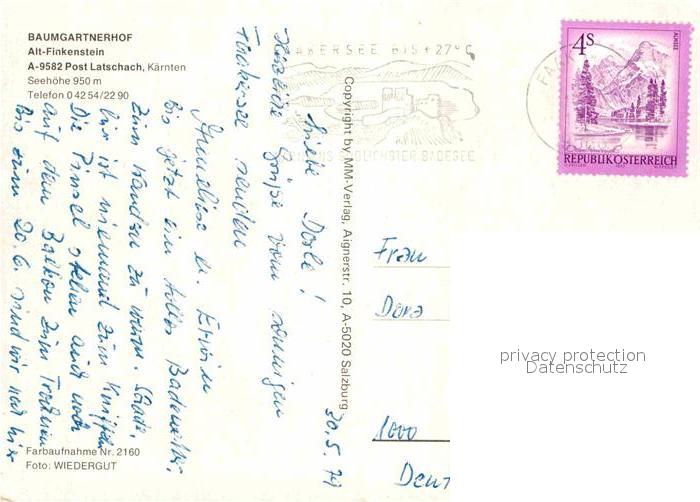 BAUMGARTNERHOF
Alt-Finkenstein
A-9582 Post Latschach, Kärnten
Seehöhe 950 m
Telefon 0 42 54/22 90
FAAKERSEE BIS +27°C
SÜDLICHSTER BADESEE
4s
ALMSEE
REPUBLIK ÖSTERREICH
Copyright by MM-Verlag, Aignerstr. 10, A-5020 Salzburg
30.5.79
Liebe Dorle!
Herzliche Grüße vom sonnigen
Faakersee senden
Annelise u. Erwin
bis jetzt ein tolles Badewetter,
zum zu warm. Schade,
hier ist niemand zum Kniffeln
Die Pinsel stehen auch noch
auf dem Balkon zum Trocknen
Bis zum 20.6. sind wir noch hier
Frau
Dora
1000
privacy protection
Datenschutz
Farbaufnahme Nr. 2160
Foto: WIEDERGUT